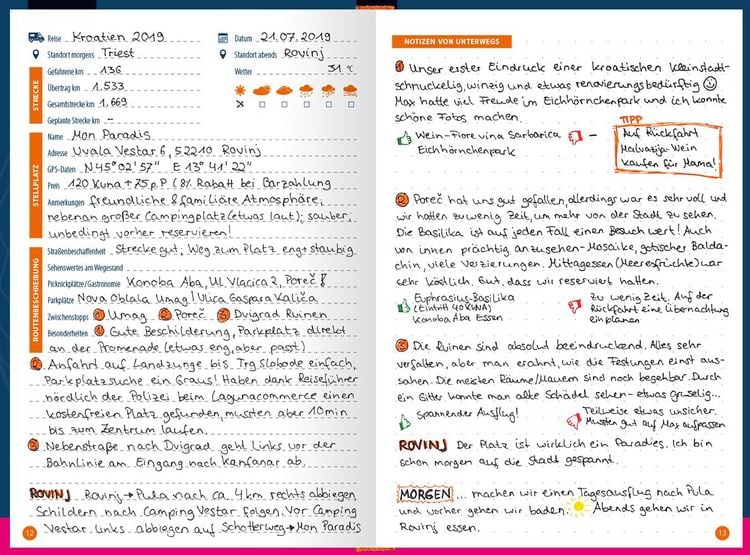 Reise Kroatien 2019
Datum 21.07.2019
Standort morgens Triest
Standort abends Rovinj
Gefahrene km 136
Wetter 31 °C
Übertrag km 1.533
Gesamtstrecke km 1.669
Geplante Strecke km –
STRECKE
Name Mon Paradis
Adresse Uvala Vestar 6, 52210 Rovinj
GPS-Daten N 45° 02' 57" E 13° 41' 22"
Preis 120 Kuna + 75 p.P (8% Rabatt bei Barzahlung
Anmerkungen freundliche & familiäre Atmosphäre,
nebenan großer Campingplatz (etwas laut); sauber,
unbedingt vorher reservieren!
STELLPLATZ
Straßenbeschaffenheit Strecke gut, Weg zum Platz eng + staubig
Sehenswertes am Wegesrand
Picknickplätze/Gastronomie Konoba Aba, Ul Vlacica 2, Poreč!
Parkplätze Nova Oblala Umag! Ulica Gaspara Kaliča
Zwischenstopps 1 Umag 2 Poreč 3 Dvigrad Ruinen
Besonderheiten 1 Gute Beschilderung, Parkplatz direkt
an der Promenade (etwas eng, aber passt)
ROUTENBESCHREIBUNG
2 Anfahrt auf Landzunge bis Trg Slobode einfach,
Parkplatzsuche ein Graus! Haben dank Reiseführer
nördlich der Polizei beim Lagunacommerce einen
kostenfreien Platz gefunden, mussten aber 10 min
bis zum Zentrum laufen.
3 Nebenstraße nach Dvigrad geht links vor der
Bahnlinie am Eingang nach Kanfanar ab.
ROVINJ Rovinj → Pula nach ca. 4 km rechts abbiegen
Schildern nach Camping Vestar folgen. Vor Camping
Vestar links abbiegen auf Schotterweg → Mon Paradis
12
NOTIZEN VON UNTERWEGS
1 Unser erster Eindruck einer kroatischen Kleinstadt-
schnuckelig, winzig und etwas renovierungsbedürftig ☺
Max hatte viel Freude im Eichhörnchenpark und ich konnte
schöne Fotos machen.
Wein-Fiore vina Sarbarica
Eichhörnchenpark
–
TIPP
Auf Rückfahrt
Malvatija-Wein
kaufen für Mama!
2 Poreč hat uns gut gefallen, allerdings war es sehr voll und
wir hatten zu wenig Zeit, um mehr von der Stadt zu sehen.
Die Basilika ist auf jeden Fall einen Besuch wert! Auch
von innen prächtig anzusehen - Mosaike, gotischer Balda-
chin, viele Verzierungen. Mittagessen (Meeresfrüchte) war
sehr köstlich. Gut, dass wir reserviert hatten.
Euphrasius-Basilika
(Eintritt 40 KUNA)
Konoba Aba Essen
Zu wenig Zeit. Auf der
Rückfahrt eine Übernachtung
einplanen
3 Die Ruinen sind absolut beeindruckend. Alles sehr
verfallen, aber man erahnt, wie die Festungen einst aus-
sahen. Die meisten Räume/Mauern sind noch begehbar. Durch
ein Gitter konnte man alte Schädel sehen - etwas gruselig...
Spannender Ausflug!
Teilweise etwas unsicher.
Mussten gut auf Max aufpassen
ROVINJ Der Platz ist wirklich ein Paradies. Ich bin
schon morgen auf die Stadt gespannt.
MORGEN ... machen wir einen Tagesausflug nach Pula
und vorher gehen wir baden. Abends gehen wir in
Rovinj essen.
13